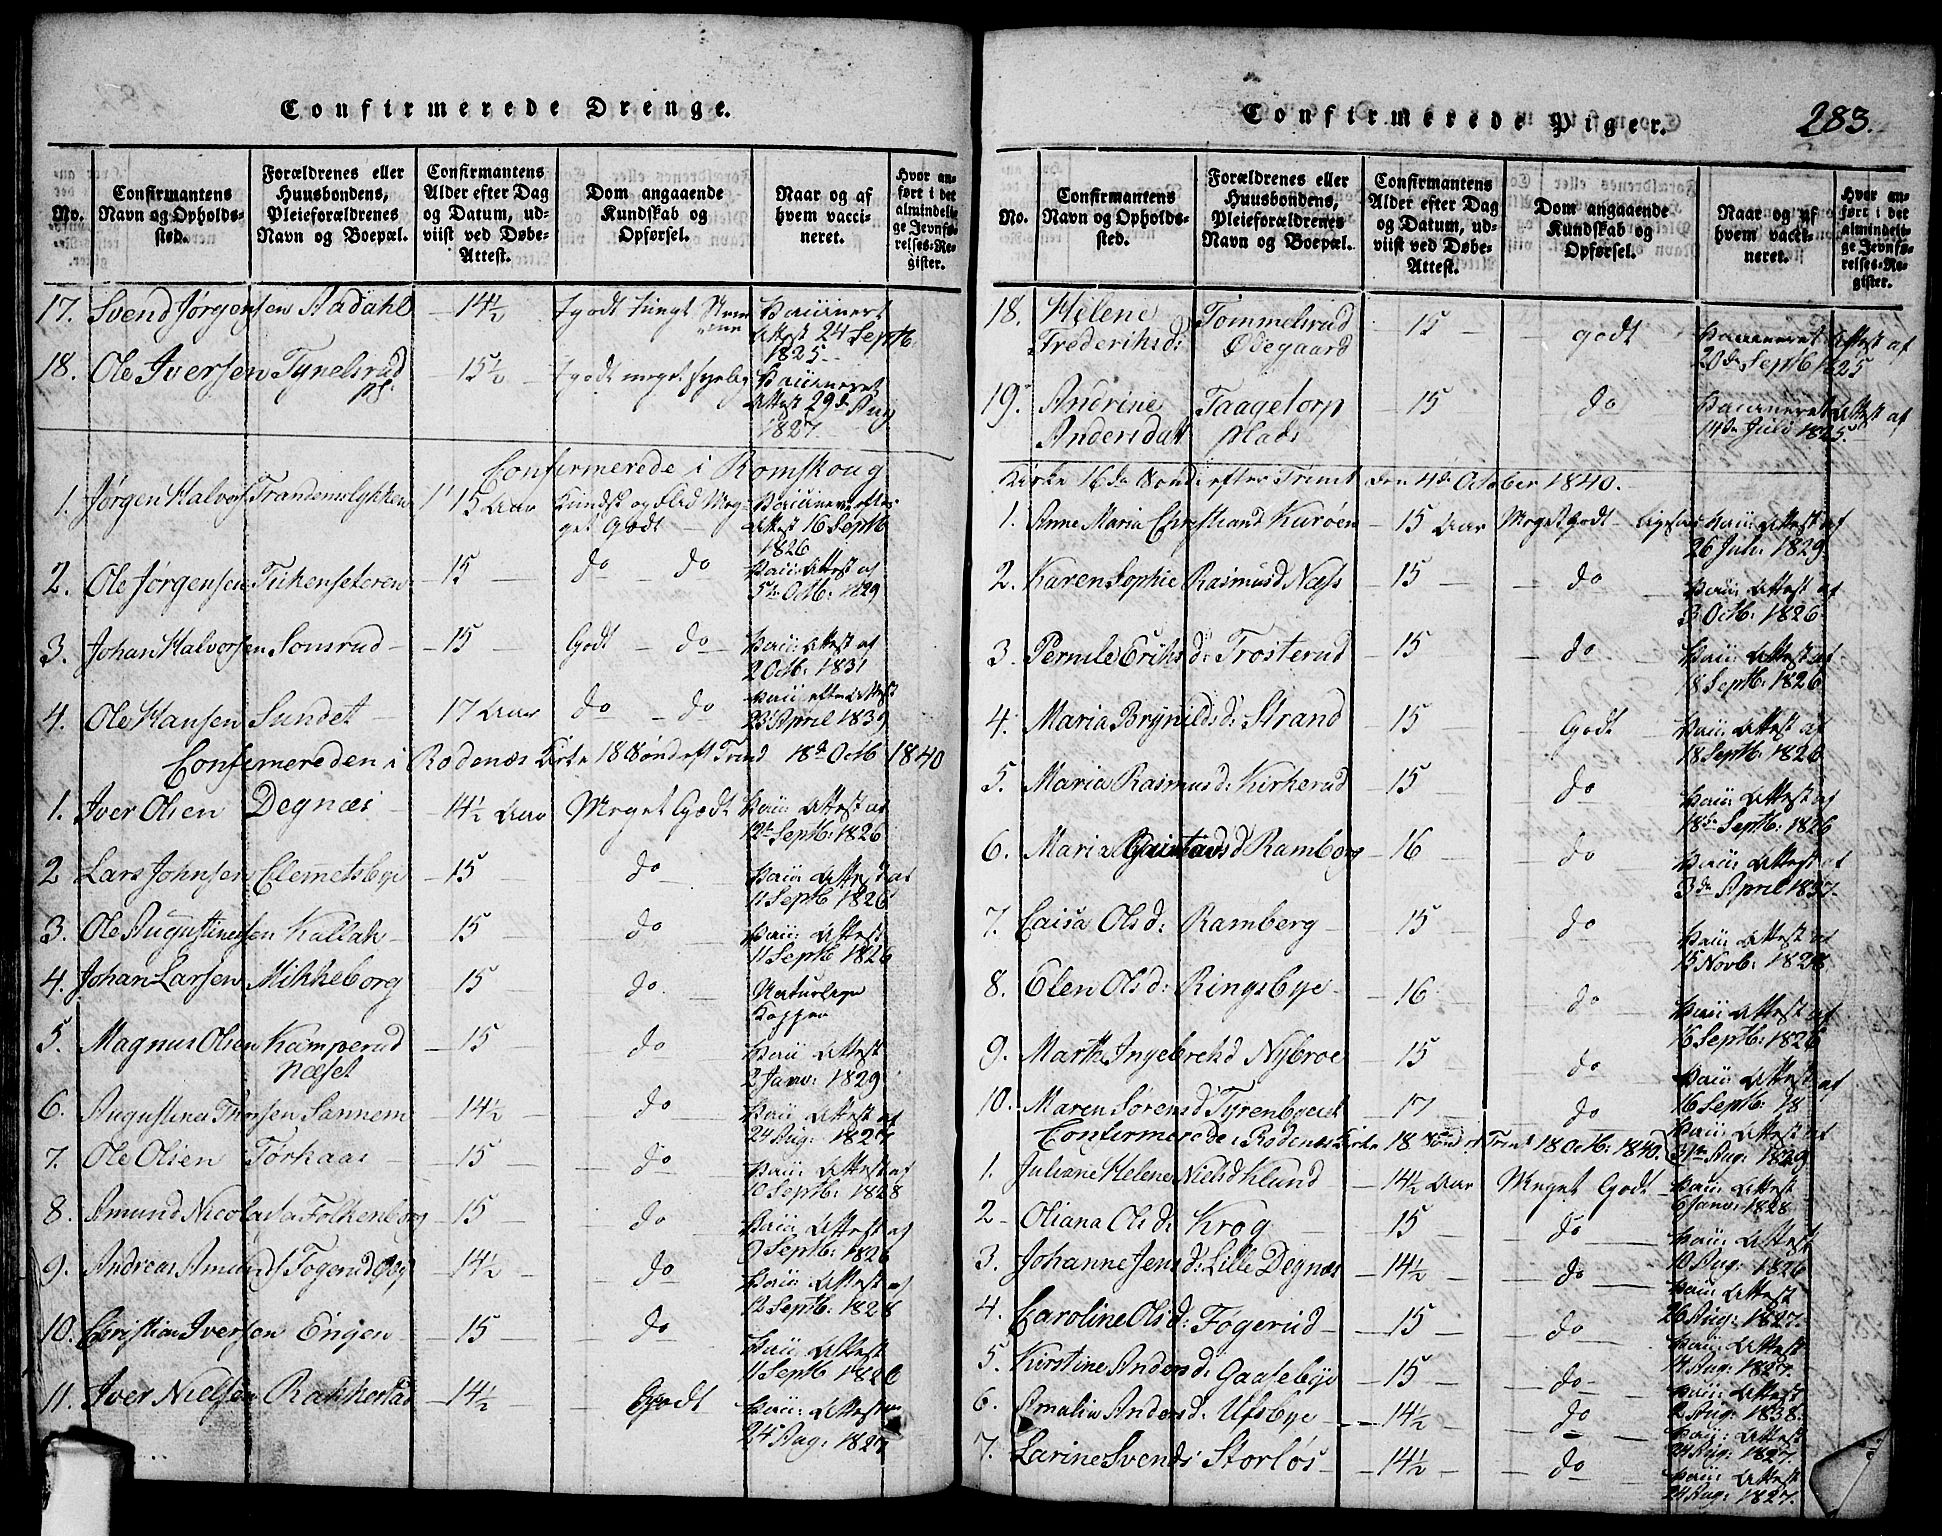 Confirmerede Drenge.
No.
Confirmantens Navn og Opholds-sted.
Forældrenes eller Huusbondens, Pleieforældrenes Navn og Boepæl.
Confirmantens Alder efter Dag og Datum, ud-viist ved Døbe-Attest.
Dom angaaende Kundskab og Opførsel.
Naar og af hvem vacci-neret.
Hvor an-ført i det almindeli-ge Jevnfø-relses-Re-gister.
17. Svend Jørgensen Aadahl - 14½ godt 24 Septb. 1825
18. Ole Iversen Tynelsrud pl: - 15½ godt meget Attest 29de Aug 1827
Confirmerede i Romskoug
1. Jørgen Halvors Trandemslykken 15 Aar Kundsk og Flid Meget Godt Attest 16 Septb 1826
2. Ole Jørgensen Tukenseteren - 15 - do - do Vaxi: Attest af 5te Octb: 1829
3. Johan Halvorsen Somrud - 15 - Godt - do Vaxi: Attest af 2 Octb: 1831
4. Ole Hansen Sundet - 17 Aar do - do 23 April 1839
Confirmereden i Rødenæs Kirke 18 Sønd eft Trind 18de Octb 1840
1. Iver Olsen Degnæs - 14½ Aar Meget Godt Vaxi: Attest af 12te Septb: 1826
2 Lars Johnsen Clemetsbye - 15 - do - Vaxi: Attest af 11 Septb 1826
3. Ole Augustinesen Kallak - 15 - do - Vaxi: Attest 11 Septb 1826
4. Johan Larsen Mikkeborg - 15 - do - Naturlige Kopper
5. Magnus Olsen Kamperud Næset - 15 - do Vaxi Attest 2 Janv: 1829
6. Augustinus Thorsen Sannem - 14½ - do Vaxi: Attest af 24 Aug: 1827
7. Ole Olsen Torkaas - 15 - do Vaxi: Attest af 10 Septb: 1828
8. Amund Nicolaisa Folkenborg - 15 - do Vaxi Attest af 9 Septb: 1826
9. Andreas Amunds Fogerud - 14½ - do Vaxi: Attest af 12 Septb: 1828
10. Christian Iversen Engen - 15 - do Vaxi Attest 11 Septb 1826
11. Iver Nielsen Rakkestad - 14½ - Godt Vaxi: Attest 24 Aug: 1827
Confirmerede Piger.
283.
No.
Confirmantens Navn og Opholds-sted.
Forældrenes eller Huusbondens, Pleieforældrenes Navn og Boepæl.
Confirmantens Alder efter Dag og Datum, ud-viist ved Døbe-Attest.
Dom angaaende Kundskab og Opførsel.
Naar og af hvem vacci-neret.
Hvor an-ført i det almindeli-ge Jevnfø-relses-Re-gister.
18. Helene Frederiksd: Tommelsrud Ødegaard - 15 - godt Attest af 20de Septb 1825
19. Andrine Andersdatt Taagetorp plads - 15 do Attest af 14de Juli 1825
Kirke 16de Sønd: efter Trinit den 4de October 1840.
1. Anne Maria Christiansd Kurøen - 15 Aar Meget Godt - Vaxi Attest af 26 Juli 1829
2. Karen Sophie Rasmusd Næss - 15 - do Vaxi: Attest af 3 Octb: 1826
3. Pernile Eriksd: Trosterud - 15 - do Vaxi: Attest af 18 Septb: 1826
4. Maria Brynildsd: Strand - 15 - Godt Vaxi Attest af 18 Septb: 1826
5. Maria Rasmusd: Kirkerud - 15 - do Vaxi: Attest af 18de Septb: 1826
6. Maria Gustavsd Ramborg - 16 - do Vaxi: Attest af 3de April 1837.
7. Caisa Olsd: Ramberg - 15 - do Vaxi: Attest af 15 Novb: 1828
8. Elen Olsd: Ringsbye - 16 - do Vaxi: Attest af 16 Septb: 1826
9. Marthe Ingebretsd Nybroe 15 - do Vaxi: Attest af 16 Septb: 18
10. Maren Sørensd Tyrenbyeiet - 17 - do Vaxi: Attest af 31te Aug: 1829
Confirmerede i Rødenæs Kirke 18 Sønd eft Trint 18 Octb: 1840.
1. Juliane Helene Nielsd Klund - 14½ Aar Meget Godt Vaxi: Attest 6 Janv: 1828
2 - Oliana Olsd: Krog 15 - do Vaxi: Attest 10 Aug: 1826
3. Johanne Jensd: Lille Degnæs - 14½ - do Vaxi: Attest 26 Aug: 1827.
4. Caroline Olsd: Fogerud - 15 - do Vaxi: Attest 14 Aug: 1827.
5. Kirstine Andersd: Gaasebye - 15 - do Vaxi: Attest 2 Aug: 1838.
6. Amalia Andersd: Ufsbye - 14½ - do Vaxi: Attest 24 Aug: 1827.
7. Larine Svends: Storløs - 14½ - do Vaxi: Attest 24 Aug: 1827.